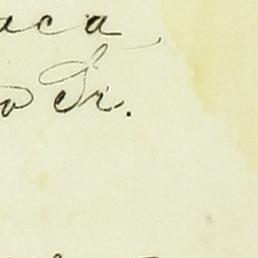 aca
o Sr.